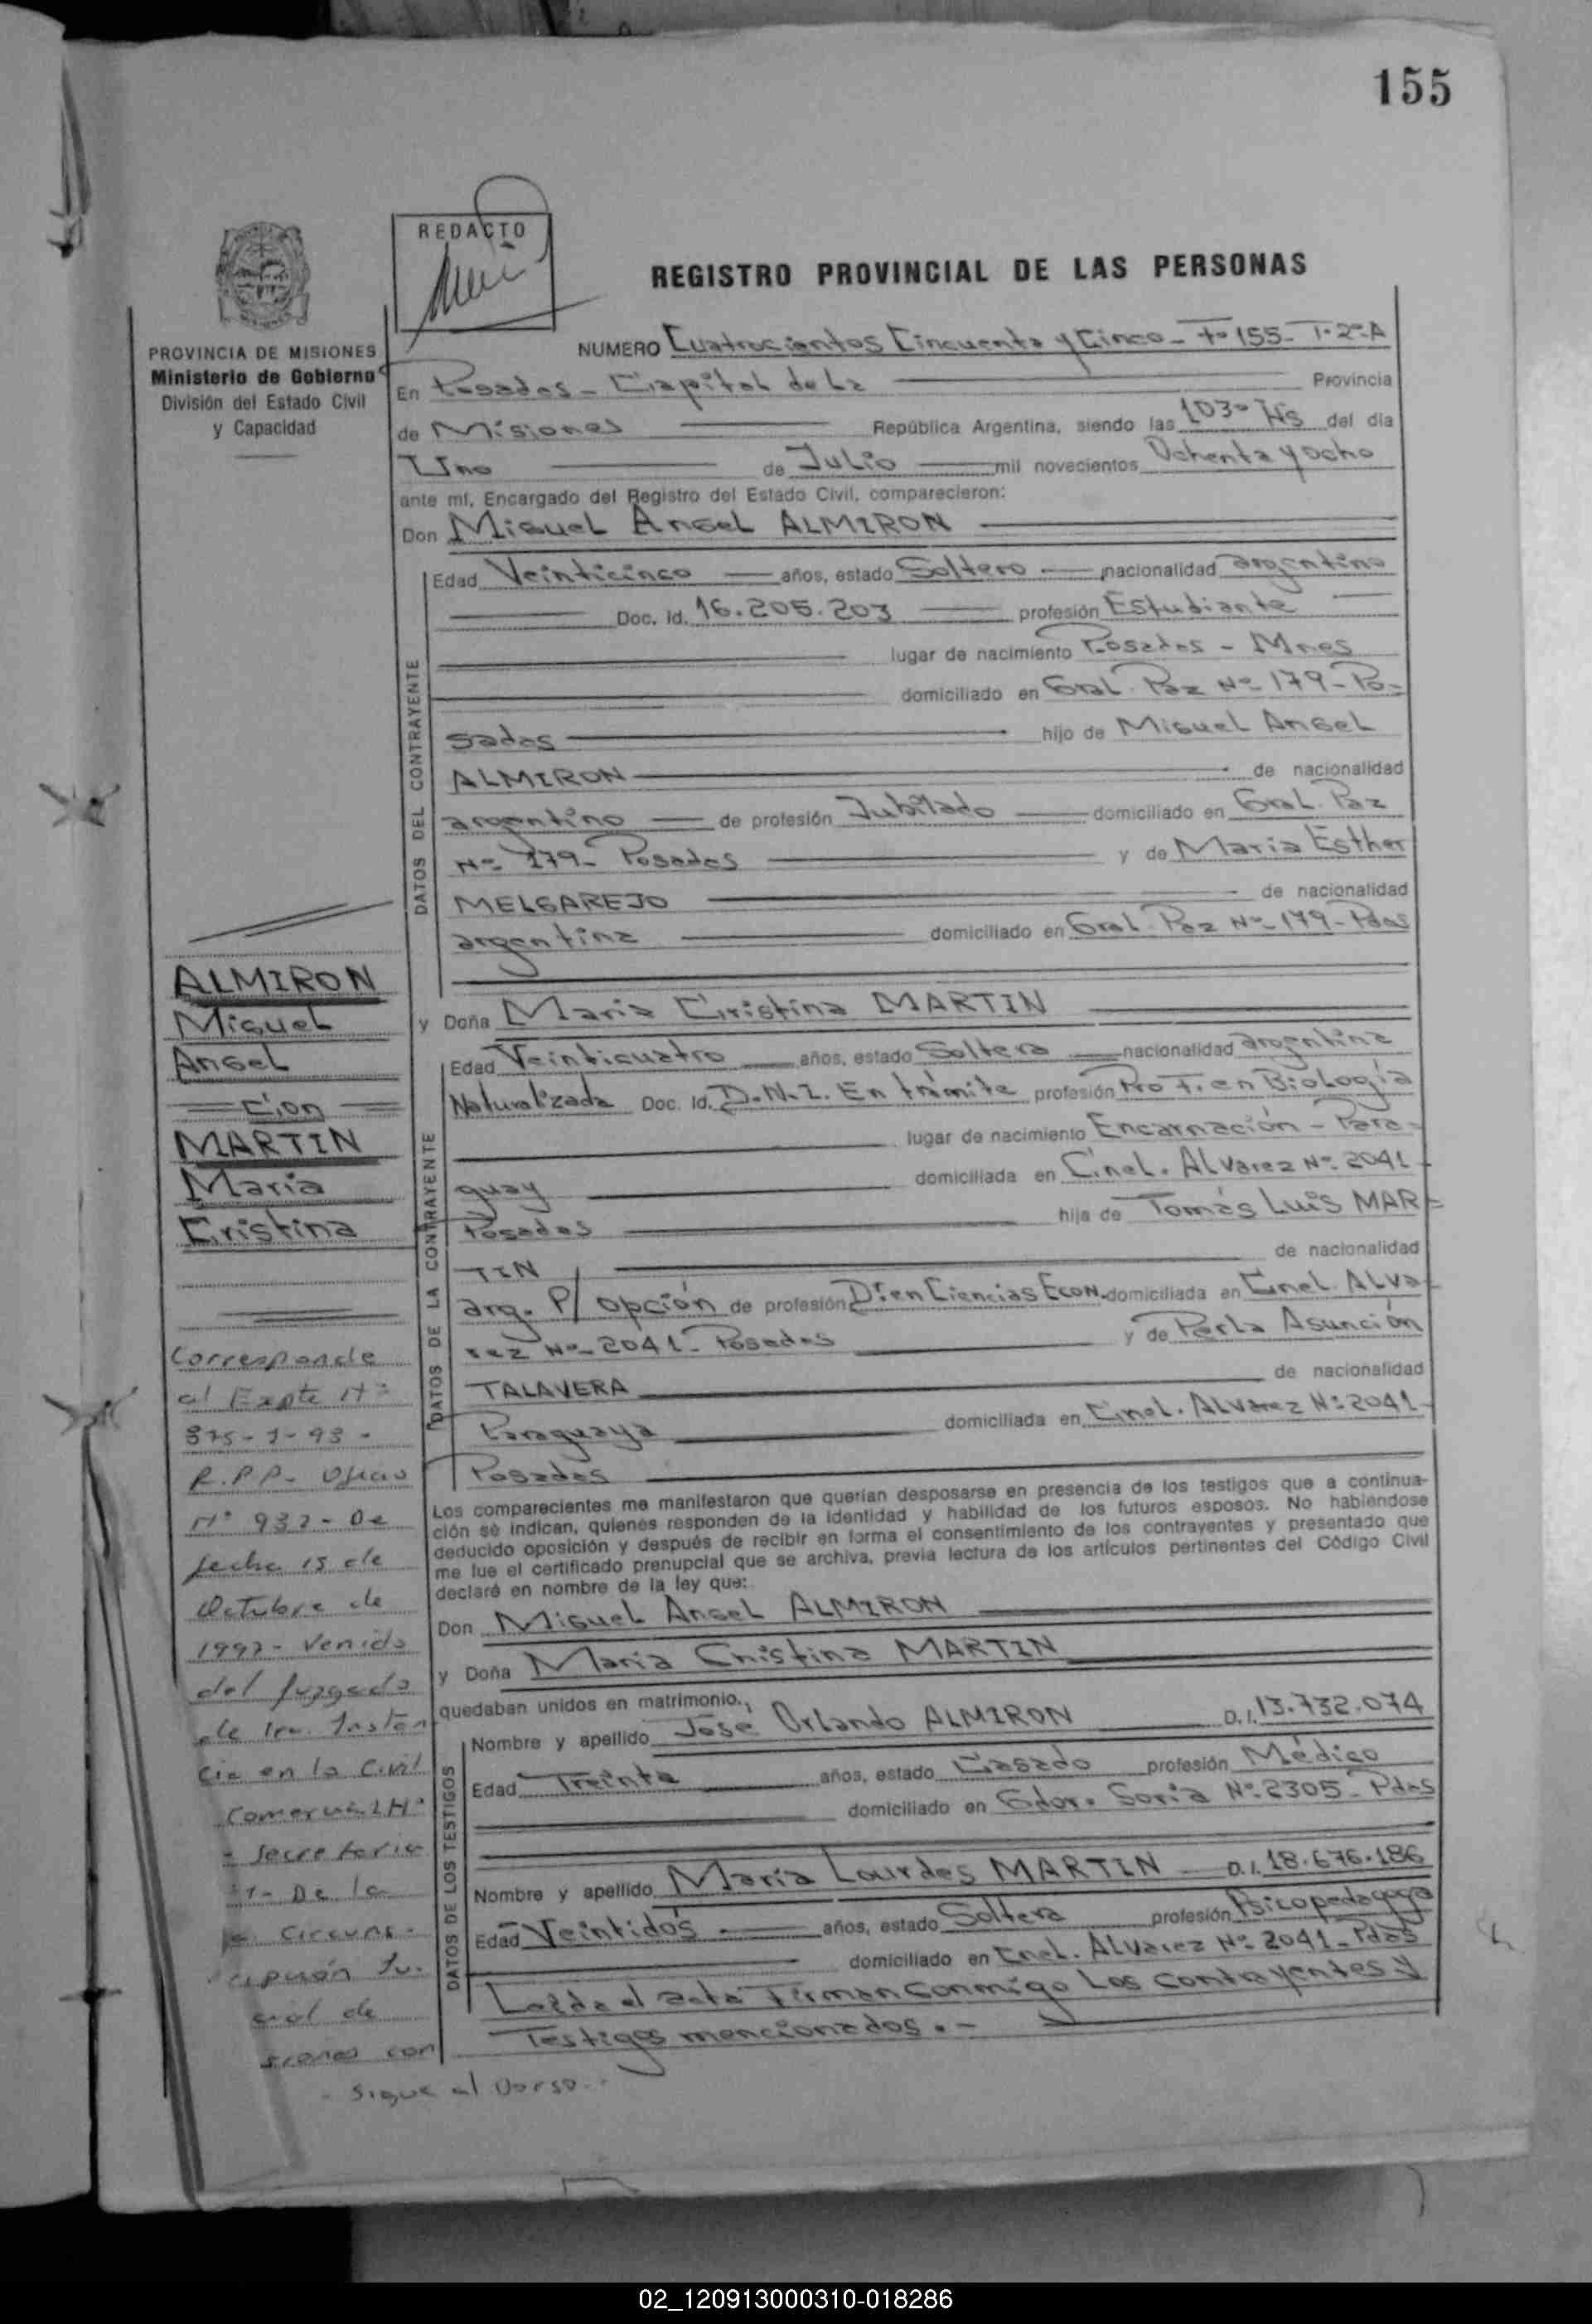 155
REDACTO
REGISTRO PROVINCIAL DE LAS PERSONAS
PROVINCIA DE MISIONES
Ministerio de Gobierno
División del Estado Civil
y Capacidad
NUMERO Cuatrocientos Cincuenta y Cinco - Fº 155 - T. 2º A
En Posadas - Capital de La Provincia
de Misiones República Argentina, siendo las 1030 Hs del día
Uno de Julio mil novecientos Ochenta y ocho
ante mí, Encargado del Registro del Estado Civil, comparecieron:
Don Miguel Angel ALMIRON
DATOS DEL CONTRAYENTE
Edad Veinticinco años, estado Soltero nacionalidad argentino
Doc. Id. 16.205.203 profesión Estudiante
lugar de nacimiento Posadas - Mnes
domiciliado en Gral. Paz Nº 179 - Po-
sadas hijo de Miguel Angel
ALMIRON de nacionalidad
argentino de profesión Jubilado domiciliado en Gral. Paz
Nº 179 - Posadas y de Maria Esther
MELGAREJO de nacionalidad
argentina domiciliado en Gral. Paz Nº 179 - Pdas
y Doña Maria Cristina MARTIN
DATOS DE LA CONTRAYENTE
Edad Veinticuatro años, estado Soltera nacionalidad argentina
Naturalizada Doc. Id. D.N.I. En trámite profesión Prof. en Biología
lugar de nacimiento Encarnación - Para-
guay domiciliada en Cnel. Alvarez Nº 2041-
Posadas hija de Tomás Luis MAR-
TIN de nacionalidad
arg. P/ opción de profesión Dr. en Ciencias Econ. domiciliada en Cnel. Alva-
rez Nº 2041 - Posadas y de Perla Asunción
TALAVERA de nacionalidad
Paraguaya domiciliada en Cnel. Alvarez Nº 2041-
Posadas
Los comparecientes me manifestaron que querían desposarse en presencia de los testigos que a continua-
ción se indican, quienes responden de la identidad y habilidad de los futuros esposos. No habiéndose
deducido oposición y después de recibir en forma el consentimiento de los contrayentes y presentado que
me fue el certificado prenupcial que se archiva, previa lectura de los artículos pertinentes del Código Civil
declaré en nombre de la ley que:
Don Miguel Angel ALMIRON
y Doña Maria Cristina MARTIN
quedaban unidos en matrimonio.
DATOS DE LOS TESTIGOS
Nombre y apellido José Orlando ALMIRON D.I. 13.732.074
Edad Treinta años, estado Casado profesión Médico
domiciliado en Gdor. Soria Nº 2305 - Pdas
Nombre y apellido María Lourdes MARTIN D.I. 18.676.186
Edad Veintidós años, estado Soltera profesión Psicopedagoga
domiciliado en Cnel. Alvarez Nº 2041 - Pdas
Leída el acta Firman conmigo Los contrayentes y
Testigos mencionados.-
ALMIRON
Miguel
Angel
Con
MARTIN
Maria
Cristina
Corresponde
al Expte Nº
R.P.P. Oficio
Nº 932 - De
fecha 15 de
Octubre de
1992 - Venido
del Juzgado
de 1ra. Instan
cia en lo Civil
Comercial Nº
Secretaria
1 - De la
Circuns-
cripción Ju-
cial de
siones con
- Sigue al Dorso.-
02_120913000310-018286